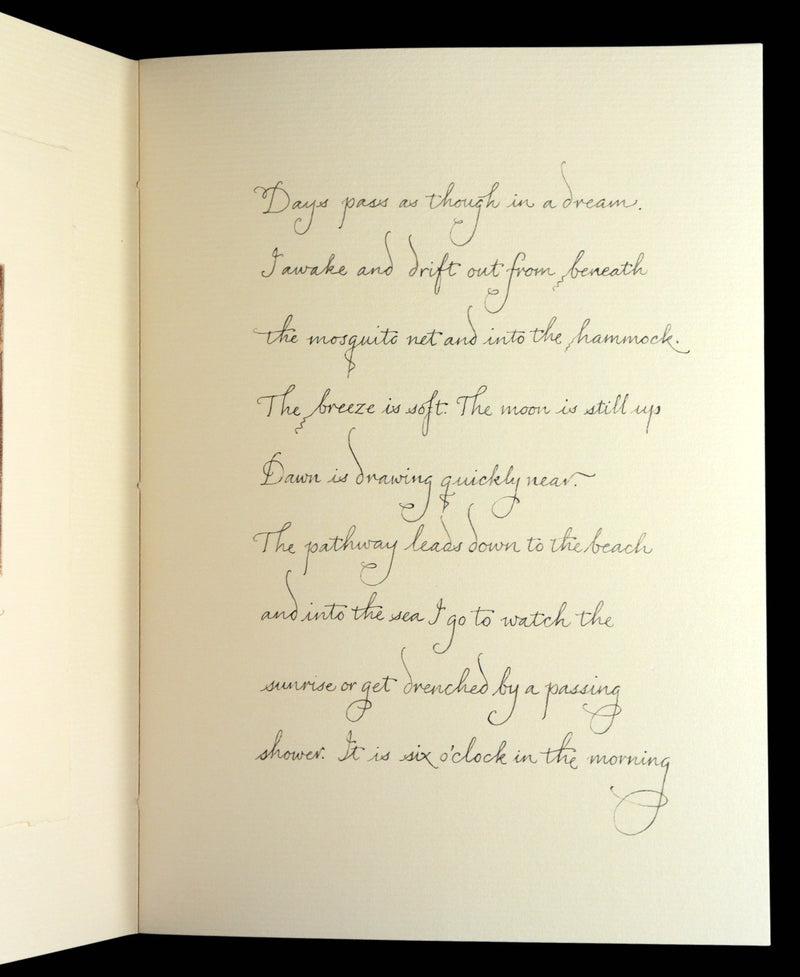 Days pass as though in a dream.
I awake and drift out from beneath
the mosquito net and into the hammock.
The breeze is soft. The moon is still up
Dawn is drawing quickly near.
The pathway leads down to the beach
and into the sea I go to watch the
sunrise or get drenched by a passing
shower. It is six o'clock in the morning